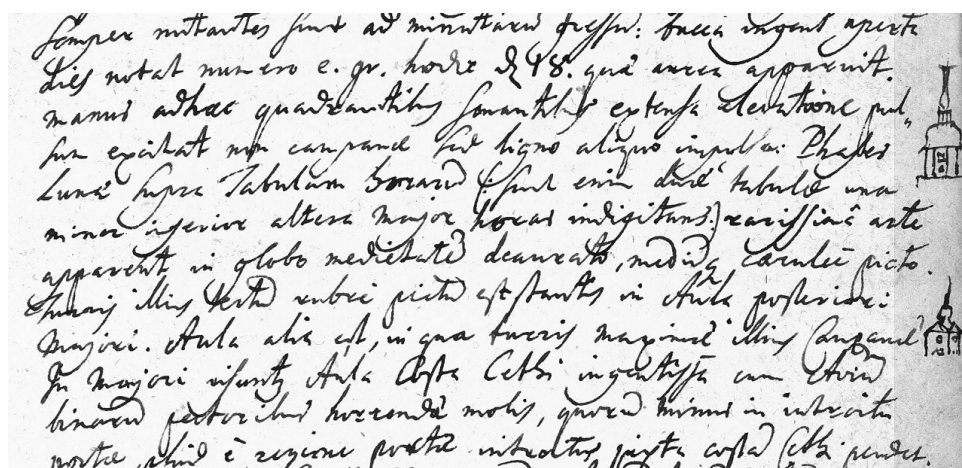 semper nutantes sunt ad minutarū gressū: bucca ingent, aperta
dies notat numero e. gr. hodie 18. quā aurea apparuit.
manus adhaec quadrantibus sonantibus extensa elevatione pul„
sum excitat non campanae sed ligno aliquo impulso: Phases
Lunae supra Tabulam horarū (: sunt enim duae tabulae una
minor inferior altera major horas indigitans:) rarissimâ arte
apparent in globo medietatē deaurato, mediaq caeruleē picto.
Turris illius tectū rubri pictū est stantis in Aula posteriori
Majori. Aula alia est, in qua turris maximae illius Campanae
In Majori visuntur Aula Costa Cethi ingentissa cum Aviū
binarū pectoribus horrendae molis, quorū minus in introitu
portae, aliud è regione portae introitus juxta costā Cethi pendet.